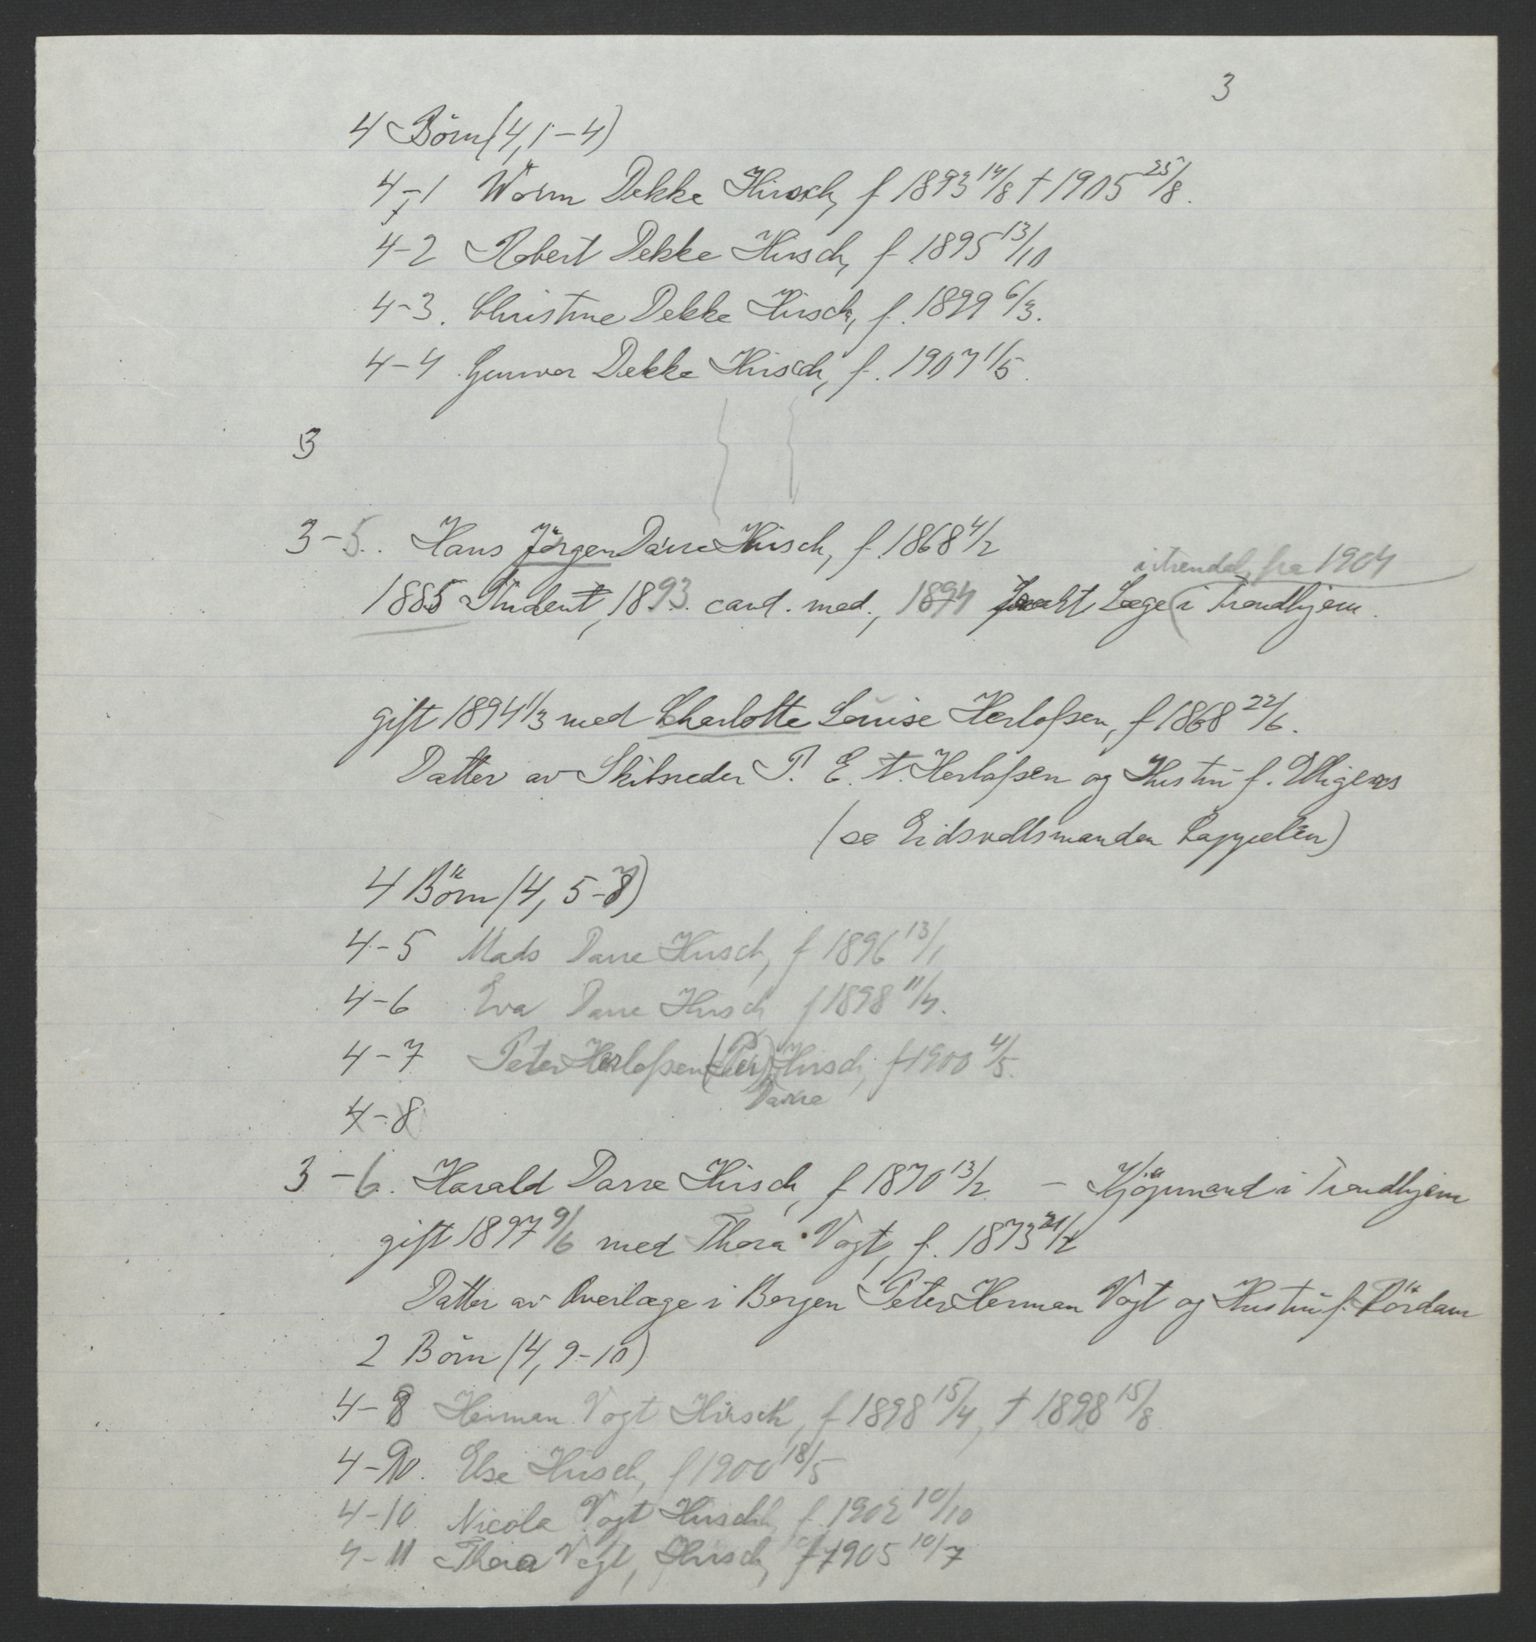 3
4 Börn (4, 1-4)
4-1 Worm Dekke Hirsch, f 1893 14/8 † 1905 25/8.
4-2 Robert Dekke Hirsch, f. 1895 13/10
4-3. Christine Dekke Hirsch, f. 1899 6/3.
4-4 Gunvor Dekke Hirsch, f. 1907 1/5.
3
3-5. Hans Jörgen Darre Hirsch, f. 1868 4/2
i Trondhj. fra 1904
1885 Student, 1893 cand. med., 1894 Læge (i Trondhjem.
gift 1894 1/3 med Charlotte Louise Herlofsen, f 1868 22/6.
Datter av Skibsreder P. E. A. Herlofsen og Hustru f. Elligers
(se Eidsvollsmanden Cappelen)
4 Börn (4, 5-8)
4-5 Mads Darre Hirsch, f 1896 13/1
4-6 Eva Darre Hirsch f 1898 11/4.
4-7 Peter Herlofsen (Per) Hirsch, f 1900 4/5.
Darre
4-8
3-6. Harald Darre Hirsch, f 1870 13/2 - Kjöpmand i Trondhjem
gift 1897 9/6 med Thora Vogt, f. 1873 21/2
Datter av Overlæge i Bergen Peter Herman Vogt og Hustru f. Rördam
2 Börn (4, 9-10)
4-8 Herman Vogt Hirsch, f 1898 15/4, † 1898 15/8
4-9. Else Hirsch, f 1900 18/5
4-10 Nicola Vogt Hirsch, f. 1902 10/10
4-11 Thora Vogt, Hirsch, f 1905 10/7